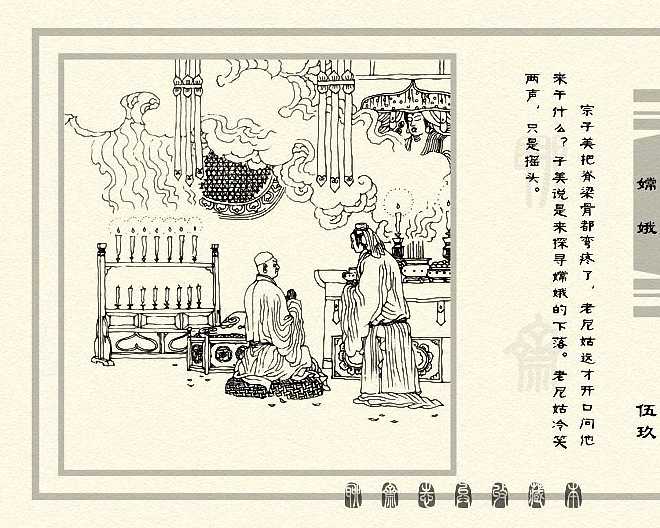 宗子美把脊梁骨都弯疼了，老尼姑这才开口问他
来干什么？子美说是来探寻嫦娥的下落。老尼姑冷笑
两声，只是摇头。
嫦娥
伍玖
聊斋志异收藏本